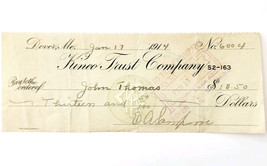 Dover, Me. Jan 17 1914 No. 6004
Kineo Trust Company 52-163
Pay to the order of John Thomas $13.50
Thirteen and
Dollars